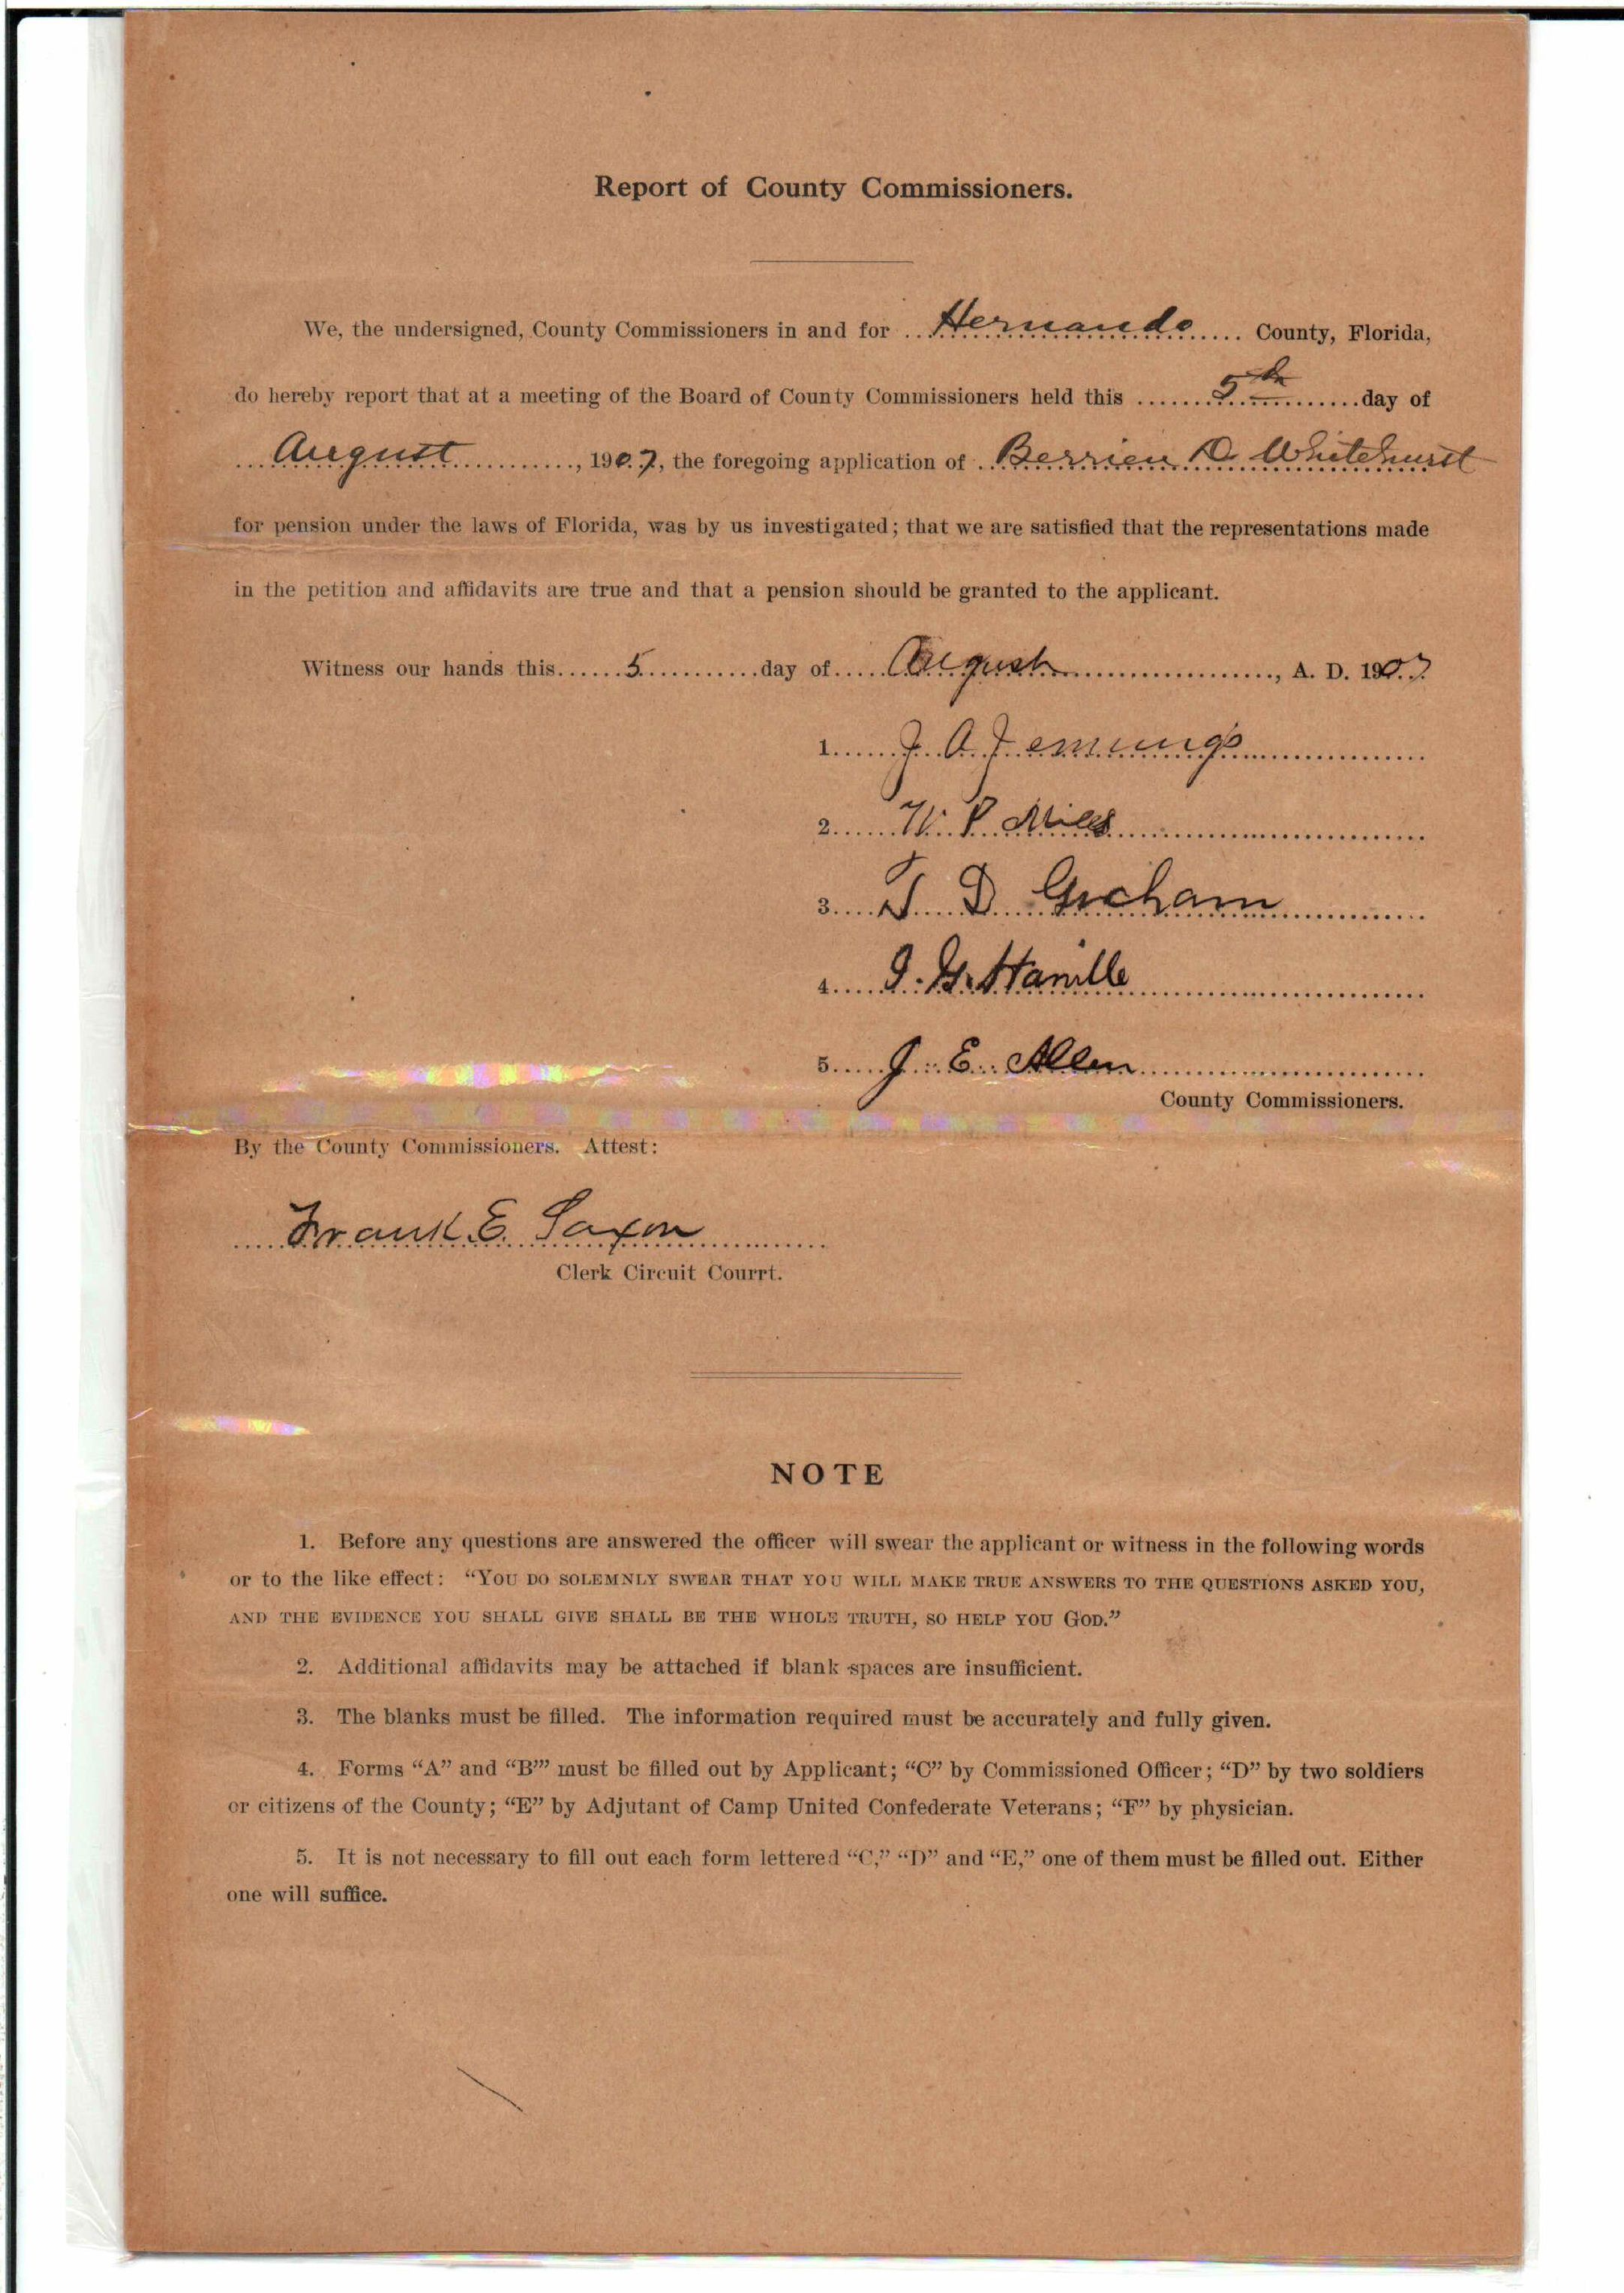 Report of County Commissioners.
We, the undersigned, County Commissioners in and for Hernando County, Florida,
do hereby report that at a meeting of the Board of County Commissioners held this 5th day of
August, 1907, the foregoing application of Berrien D. Whitehurst
for pension under the laws of Florida, was by us investigated; that we are satisfied that the representations made
in the petition and affidavits are true and that a pension should be granted to the applicant.
Witness our hands this 5 day of August, A. D. 1907
1. J. A. Jennings
2. W. P. Mills
3. T D
4. J.
5. J. E. Allen
County Commissioners.
By the County Commissioners. Attest:
Frank E. Saxon
Clerk Circuit Courrt.
NOTE
1. Before any questions are answered the officer will swear the applicant or witness in the following words
or to the like effect: “YOU DO SOLEMNLY SWEAR THAT YOU WILL MAKE TRUE ANSWERS TO THE QUESTIONS ASKED YOU,
AND THE EVIDENCE YOU SHALL GIVE SHALL BE THE WHOLE TRUTH, SO HELP YOU GOD.”
2. Additional affidavits may be attached if blank spaces are insufficient.
3. The blanks must be filled. The information required must be accurately and fully given.
4. Forms “A” and “B”’ must be filled out by Applicant; “C” by Commissioned Officer; “D” by two soldiers
or citizens of the County; “E” by Adjutant of Camp United Confederate Veterans; “F” by physician.
5. It is not necessary to fill out each form lettered “C,” “D” and “E,” one of them must be filled out. Either
one will suffice.